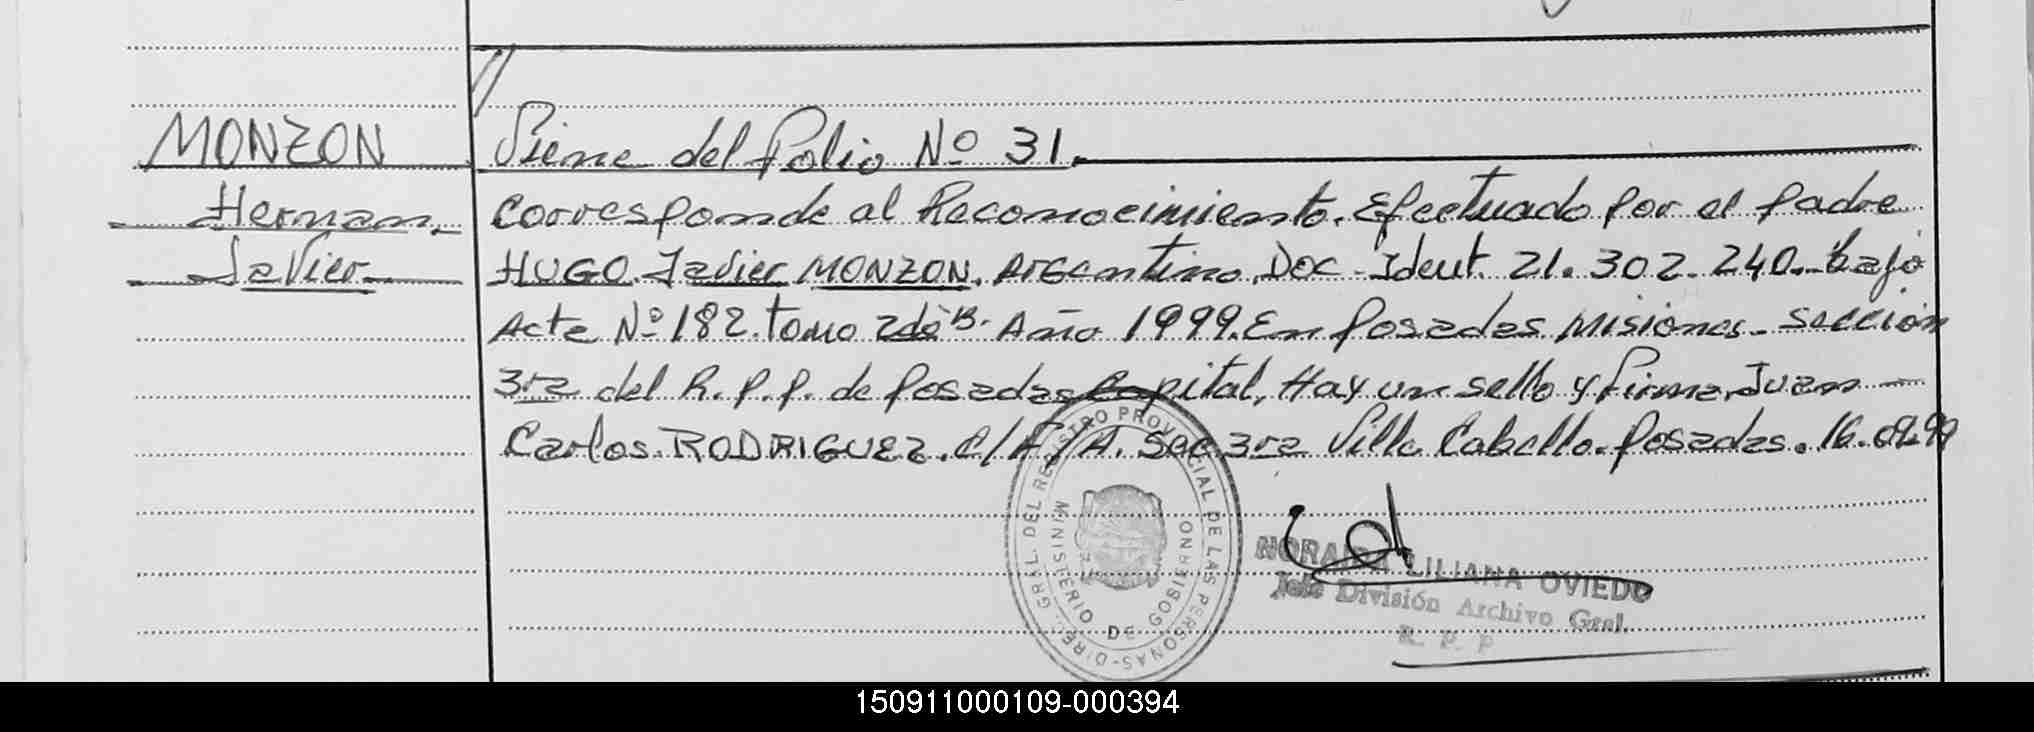 //
MONZON Viene del Folio Nº 31.
Hernan Corresponde al Reconocimiento. Efectuado por el padre
Javier HUGO Javier MONZON, Argentino, Doc. Ident. 21.302.240. bajo
Acta Nº 182. tomo 2do "B". Año 1999. En Posadas Misiones. Sección
3ra del R.P.P. de Posadas Capital, Hay un sello y firma Juan
Carlos RODRIGUEZ. C/F/A. Sec 3ra Villa Cabello. Posadas. 16.09.99
GRAL. DEL REGISTRO PROVINCIAL DE LAS PERSONAS-DIRE.
MINISTERIO DE GOBIERNO
LILIANA OVIEDO
Jefe División Archivo Gral.
R. P. P
150911000109-000394